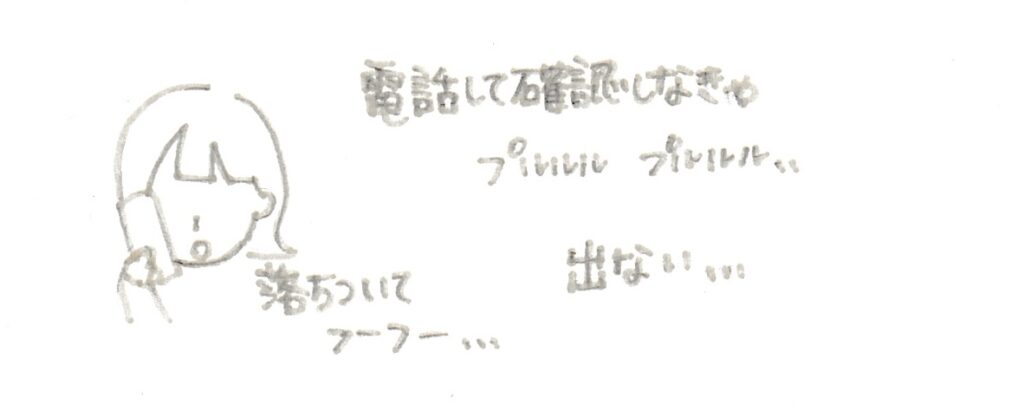 電話して確認しなきゃ
プルルルル プルルルル..
出ない...
落ちついて
フーフー...